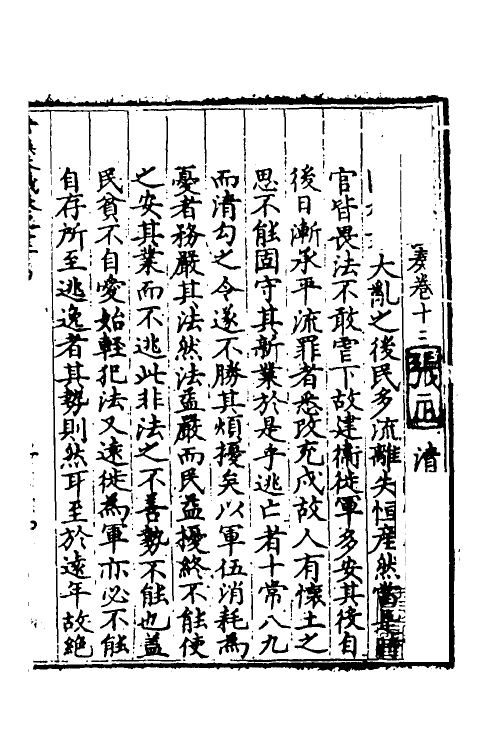 卷十三 張 清
大亂之後民多流離失恒產然當是時
官皆畏法不敢虐下故建衛徙軍多安其後自
後日漸承平流罪者悉改充戍故人有懷土之
思不能固守其新業於是乎逃亡者十常八九
而清勾之令遂不勝其煩擾矣以軍伍消耗為
憂者務嚴其法然法益嚴而民益擾終不能使
之安其業而不逃此非法之不善勢不能也蓋
民貧不自愛始輕犯法又遠徙為軍亦必不能
自存所至逃逸者其勢則然耳至於遠年故絕